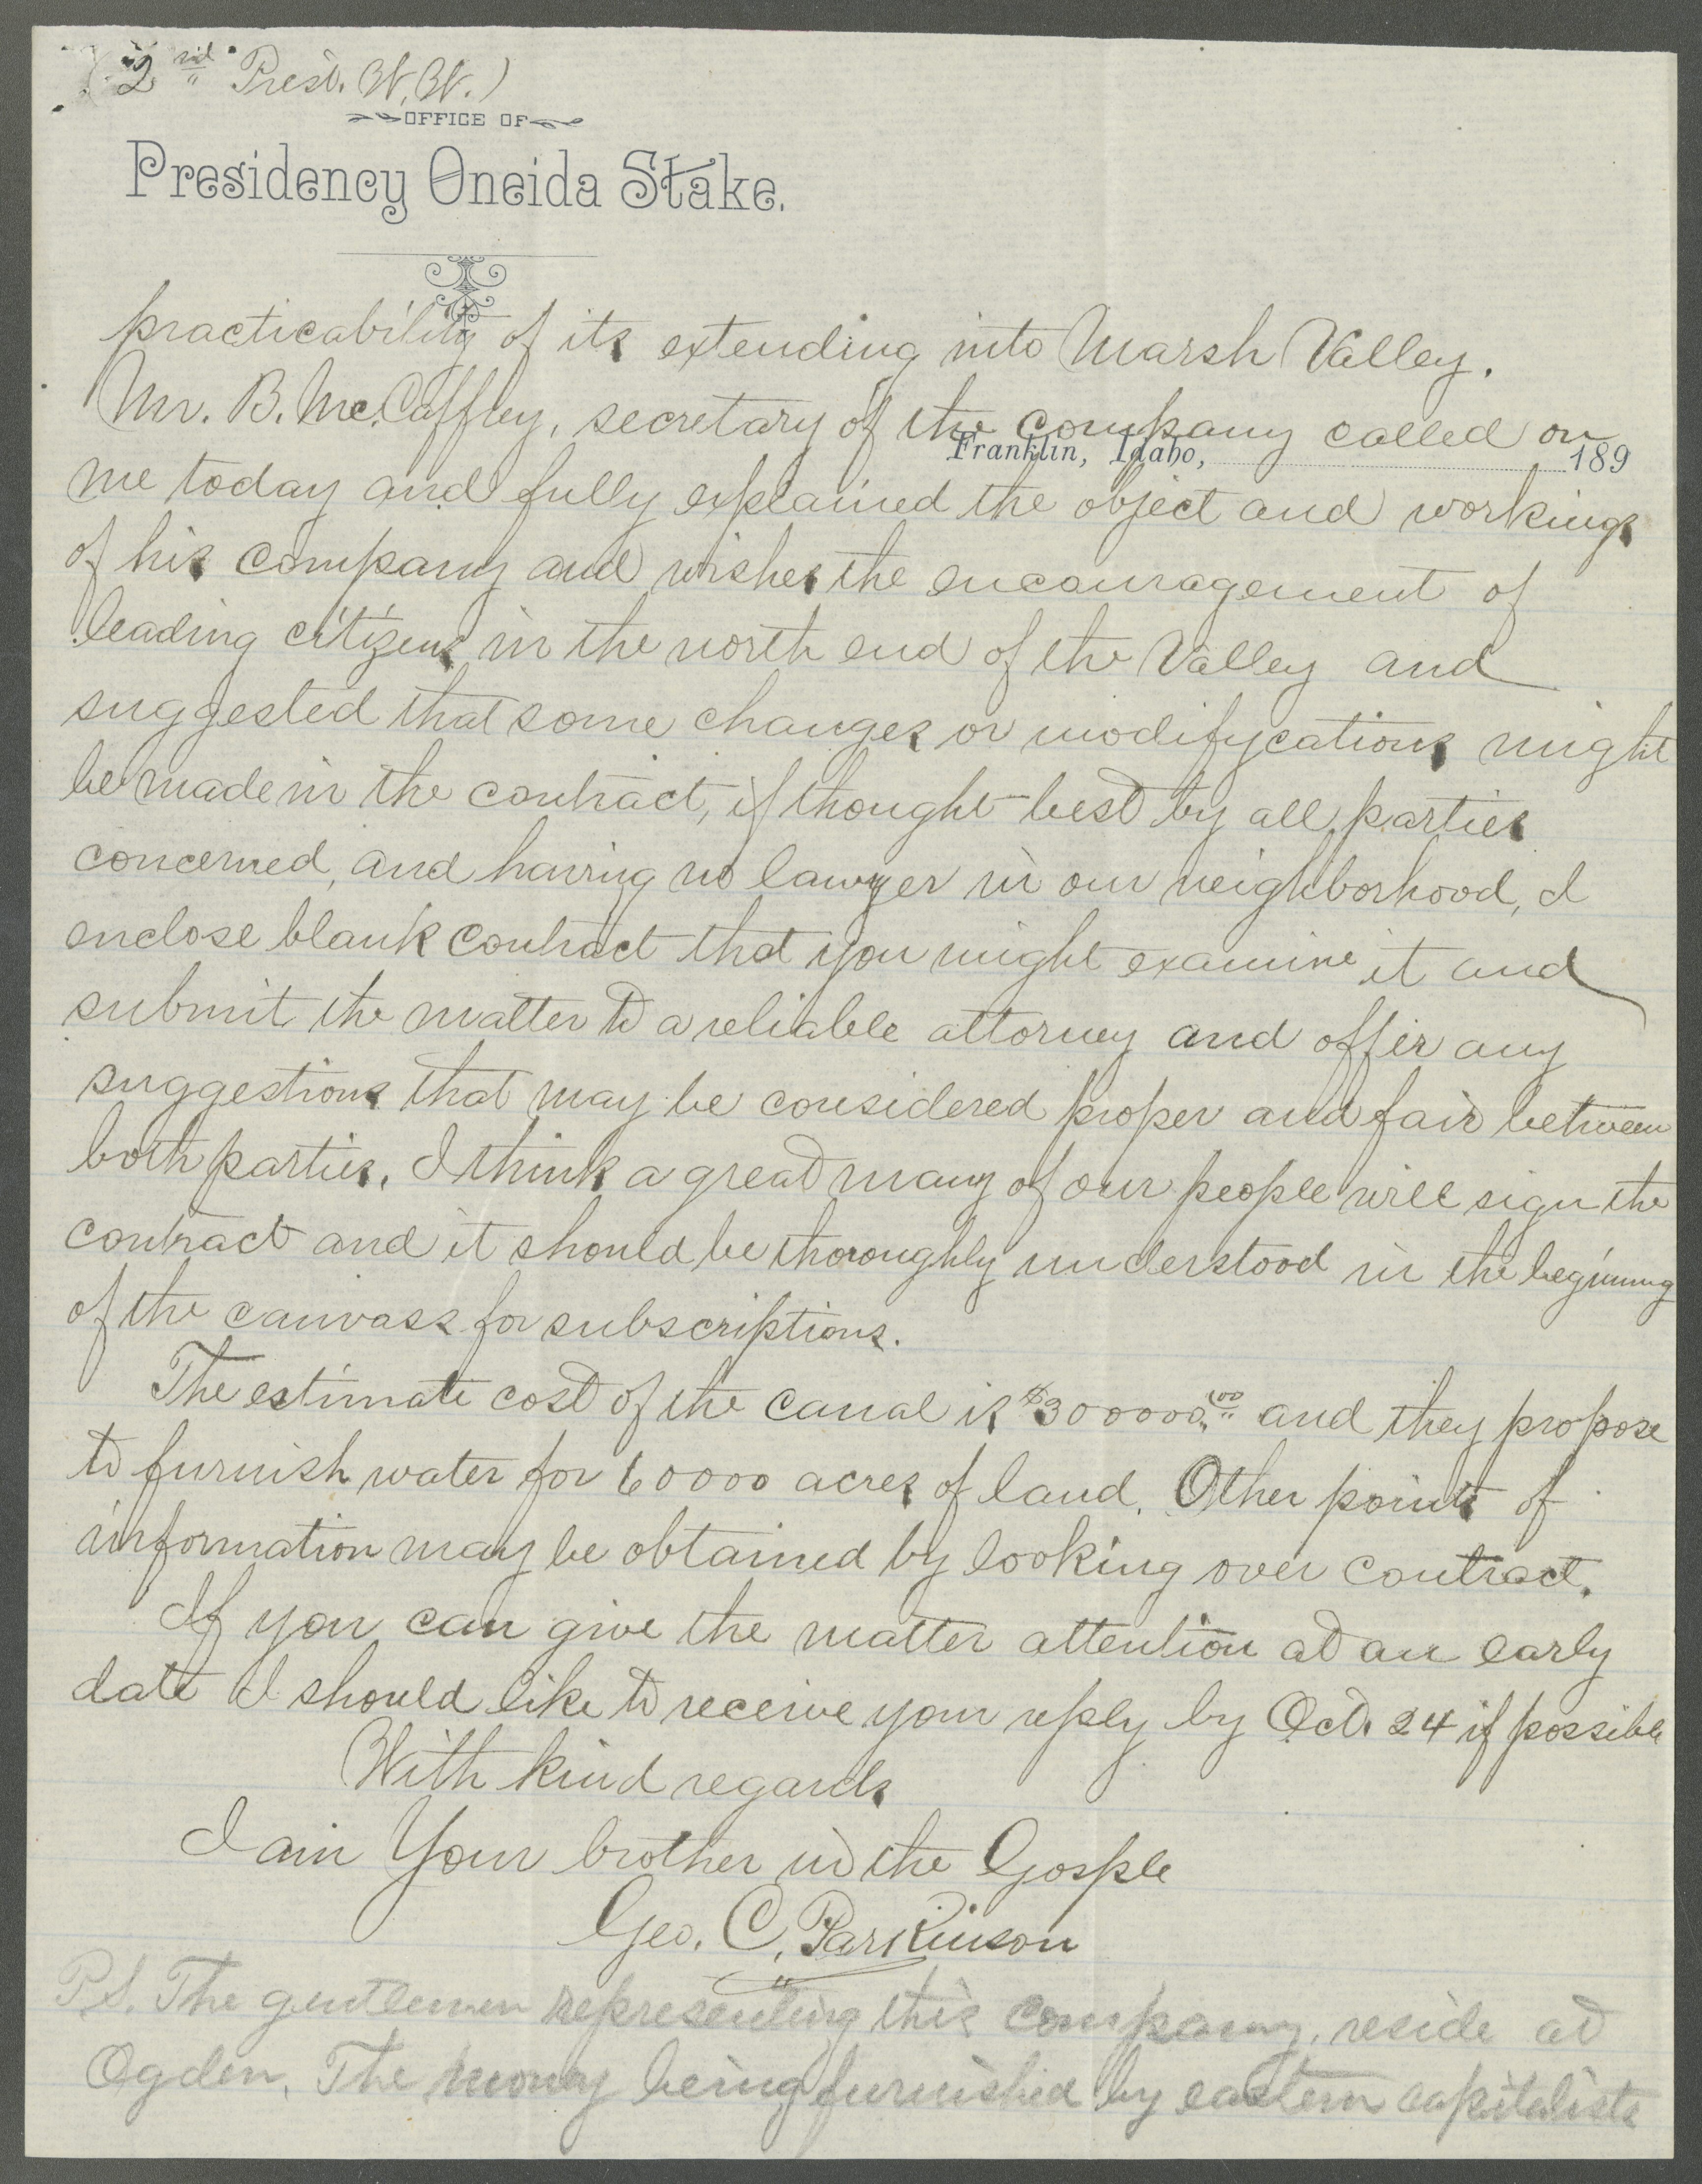 (2nd Prest. W. W.)
OFFICE OF
Presidency Oneida Stake.
practicability of its extending into Marsh Valley.
Mr. B. Mc.Caffrey, secretary of the company called on
Franklin, Idaho, 189
me today and fully explained the object and workings
of his company and wishes the encouragement of
leading citizens in the north end of the Valley and
suggested that some changes or modifycations might
be made in the contract, if thought best by all parties
concerned, and having no lawyer in our neighborhood, I
enclose blank contract that you might examine it and
submit the matter to a reliable attorney and offer any
suggestions that may be considered proper and fair between
both parties. I think a great many of our people will sign the
contract and it should be thoroughly understood in the begining
of the canvass for subscriptions.
The estimate cost of the canal is $300000.00 and they propose
to furnish water for 60000 acres of land. Other points of
information may be obtained by looking over contract.
If you can give the matter attention at an early
date I should like to receive your reply by Oct. 24 if possible
With kind regards
I am Your brother in the Gosple
Geo. C. Parkinson
P.S. The gentlemen representing this company, reside at
Ogden. The money being furnished by eastern capitalists